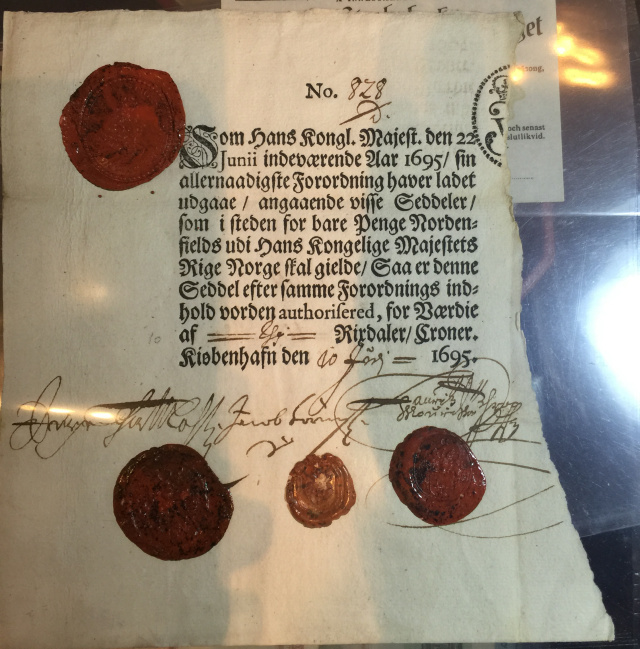 No. 828
Som Hans Kongl. Majest. den 22
Junii indeværende Aar 1695/ sin
allernaadigste Forordning haver ladet
udgaae / angaaende visse Seddeler/
som i steden for bare Penge Norden-
fields udi Hans Kongelige Majestets
Rige Norge skal gielde/ Saa er denne
Seddel efter samme Forordnings ind-
hold vorden authorisered, for Værdie
af Rixdaler/ Croner.
Kiøbenhafn den 10 1695.
et
och senast